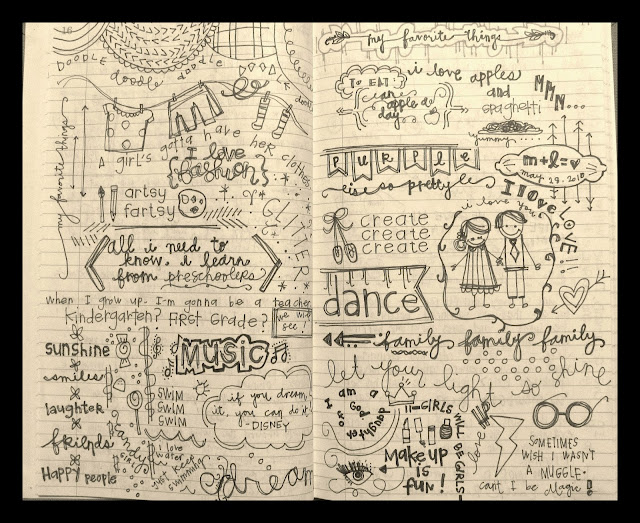 16
DOODLE doodle DOODLE
DOODLE
doodle
my favorite things
A girl's gotta have her clothes
I love
{fashion}
artsy
fartsy
GLITTER
all i need to
know, i learn
from preschoolers
when I grow up- I'm gonna be a teacher
Kindergarten? First Grade?
we will
see!
sunshine
smiles
laughter
friends
Happy people
candy
MUSIC
SWIM
SWIM
SWIM
i love
water
just keep
swimming
if you dream
it, you can do it.
-DISNEY
dream
my favorite things
To EAT:
an
apple a
day
i love apples
and
spaghetti
MMM...
yummy
PURPLE
is so pretty
m+l=♥
may 29, 2010
I love
LOVE!!
i love you
create
create
create
dance
family family family
let your light so shine
I am a
daughter
of God
GIRLS
WILL BE GIRLS
MAKE UP
IS
FUN!
love
SOMETIMES
WISH I WASN'T
A MUGGLE.
cant I be Magic?